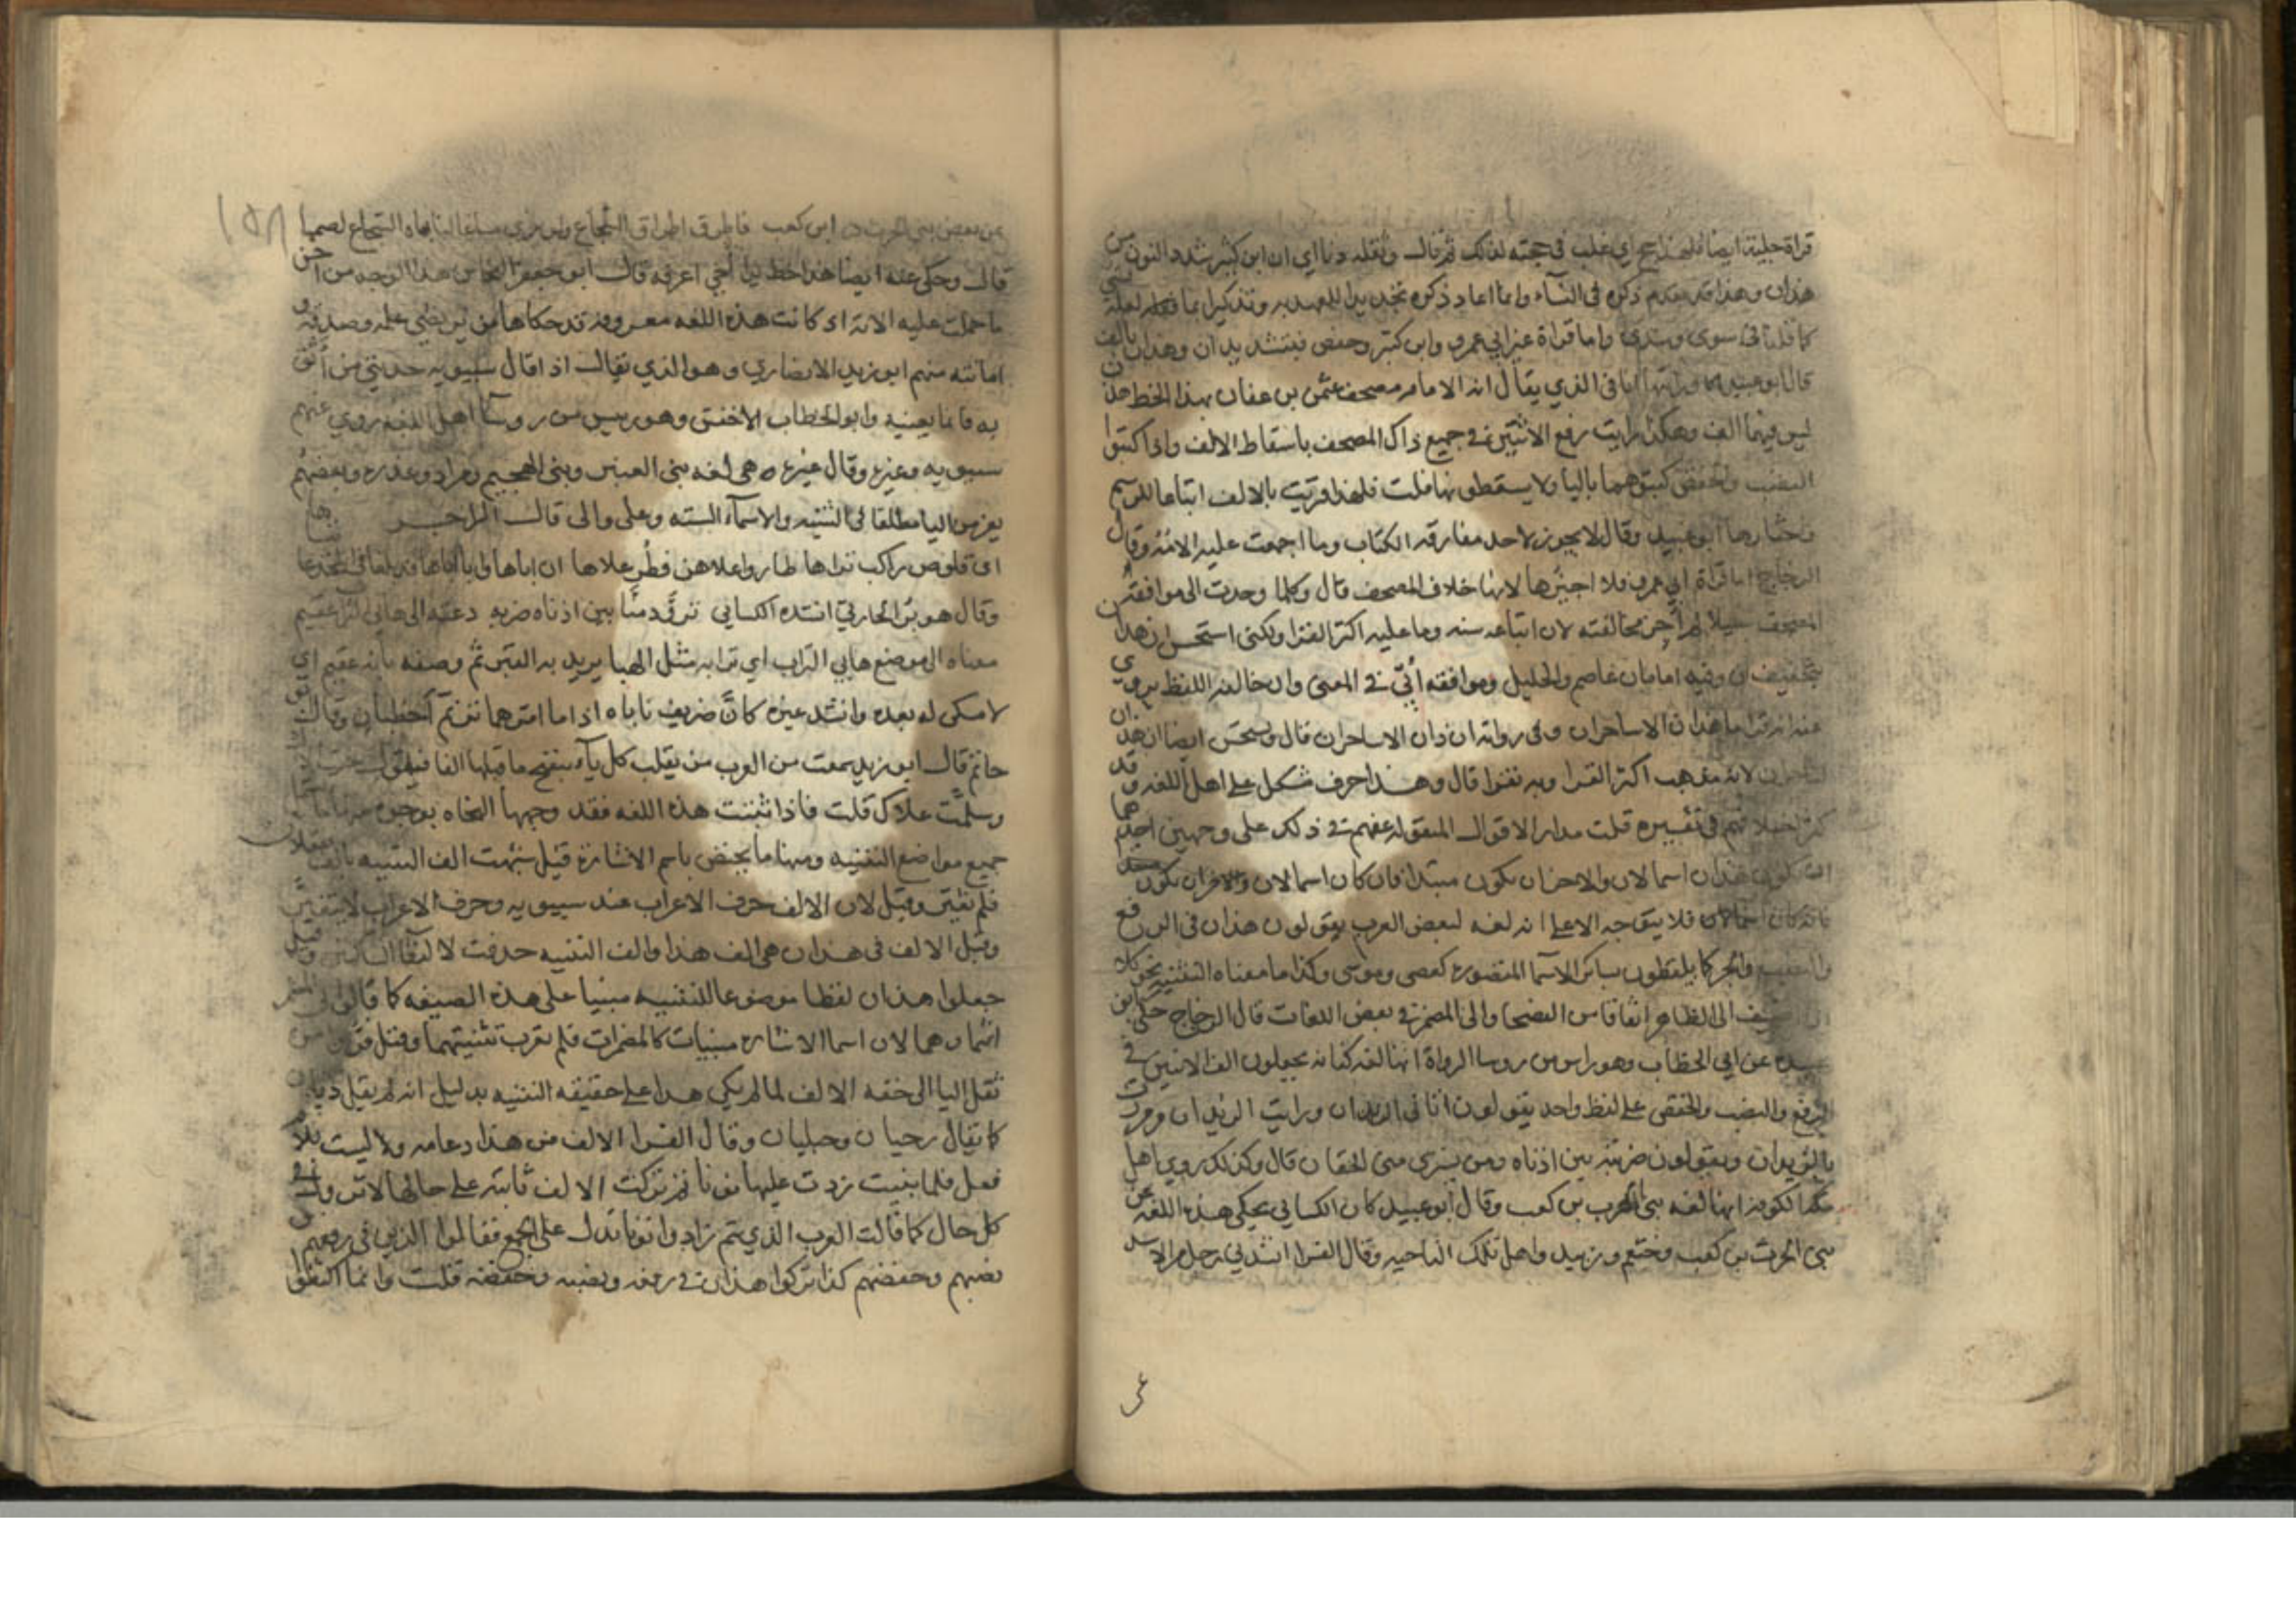 قراة جلية ايضا فلهذا حج اي غلب في حجته لذلك ثم قال وثقله دنا اي ان ابن كثير شدد النون من
هذان وهذا قد تقدم ذكره في النساء وانما اعاد ذكره تجديدا للعهد به وتذكيرا بما
كما قلنا في سوى وسدى واما قراة غير ابي عمرو وابن كثير وحفص فبتشديد ان وهذان بالف
قال ابو عبيد كذا رايتها انا في الذي يقال انه الامام مصحف عثمن بن عفان بهذا الخط هذن
ليس فيها الف وهكذا رايت رفع الاثنين في جميع ذاك المصحف باسقاط الالف واذا كتبوا
النصب والخفض كتبوهما باليا ولا يسقطونها قلت فلهذا قريت بالالف اتباعا للرسم
واختارها ابو عبيد وقال لا يجوز لاحد مفارقة الكتاب وما اجمعت عليه الامة وقال
الزجاج اما قراة ابي عمرو فلا اجيزها لانها خلاف المصحف قال وكلما وجدت الى موافقة
المصحف سبيلا لم اجز مخالفته لان اتباعه سنه وما عليه اكثر القرا ولكني استحسن ان هذان
بتخفيف ان وفيه امامان عاصم والخليل وموافقة أُبَيّ في المعنى وان خالفه اللفظ يروي
عنه انه قرا ما هذان الا ساحران وفي رواية ان ذان الا ساحران قال ويستحسن ايضا ان هذان
لساحران لانه مذهب اكثر القرا وبه نقرا قال وهذا حرف مشكل على اهل اللغه وقد
كثر اختلافهم في تفسيره قلت مدار الاقوال المنقوله عنهم في ذلك على وجهين احدهما
ان تكون هذان اسما لان والاخر ان يكون مبتدا فان كان اسما لان
فلا يتوجه الا على انه لغه لبعض العرب يقولون هذان في الرفع
والنصب والجر كما يلفظون بساكن الاسما المقصوره كعصى وموسى وكذا ما معناه التثنيه نحو كلا
اذا اضيف الى الظاهر اتفاقا من الفصحا والى المضمر في بعض اللغات قال الزجاج حكى ابو
عبيده عن ابي الخطاب وهو راس من روسا الرواة انها لغة كنانه يجعلون الف الاثنين في
الرفع والنصب والخفض على لفظ واحد يقولون اتاني الزيدان ورايت الزيدان ومررت
بالزيدان ويقولون ضربته بين اذناه ومن يشتري مني الخفان قال وكذلك روى اهل
الكوفة انها لغة بني الحرب بن كعب وقال ابو عبيد كان الكسايي يحكي هذه اللغه عن
بني الحرث بن كعب وخثعم وزبيد واهل تلك الناحيه وقال الفرا انشدني رجل من الاسد
عن
١٥٨
عن بعض بني الحرث بن كعب فاطرق اطراق الشجاع ولو يرى مساغا لناباه الشجاع لصمما
قال وحكى عنه ايضا هذا خط يدا أخي اعرفه قال ابو جعفر النحاس هذا الوجه من احسن
ما حملت عليه الاية اذ كانت هذه اللغه معروفة قد حكاها من يرتضي علمه وصدقه و
امانته منهم ابو زيد الانصاري وهو الذي يقال اذا قال سيبويه حدثني من أثق
به فانما يعنيه وابو الخطاب الاخفش وهو رييس من روسا اهل اللغه روى عنهم
سيبويه وغيره وقال غيره هي لغه بني العنبر وبني الهجيم ومراد وعذره وبعضهم
يفر من اليا مطلقا في التثنيه والاسماء السته وعلى والى قال الراجز
اي قلوص راكب تراها طاروا علاهن فطر علاها ان اباها وابا اباها قد بلغا في المجد غايتاها
وقال هوبر الحارثي انشده الكسايي تزوَّد منَّا بين اذناه ضربه دعته الى هابي التراب عقيم
معناه الى موضع هابي التراب اي ترابه مثل الهبا يريد به القبر ثم وصفه بانه عقيم اي
لا سكنى له بعده وانشد غيره كانَّ صريف ناباه اذا ما امرهما ترنم أخطبان وقال ابو
حاتم قال ابو زيد سمعت من العرب من يقلب كل ياء ينفتح ما قبلها الفا فيقول جيت
وسلَّمت علاك قلت فاذا ثبتت هذه اللغه فقد وجهها النحاه بوجوه
جميع مواضع التثنيه ومنها ما يختص باسم الاشارة قيل شبهت الف التثنيه بالف يفعلان
فلم تغير وقيل لان الالف حرف الاعراب عند سيبويه وحرف الاعراب لا يتغير
وقيل الالف في هذان هي الف هذا والف التثنيه حذفت لالتقا الساكنين وقيل
جعلوا هذان لفظا موضوعا للتثنيه مبنيا على هذه الصيغه كما قالوا في المضمر
انتما وهما لان اسما الاشاره مبنيات كالمضمرات فلم تعرب تثنيتهما وقيل فروا من
ثقل اليا الى خفه الالف لما لم يكن هذا على حقيقه التثنيه بدليل انه لم يقل ذيان
كما يقال رحيان وحبليان وقال الفرا الالف من هذا دعامه وليست بلام
فعل فلما بنيت زدت عليها نونا ثم تركت الالف ثابتة على حالها لا تزول في
كل حال كما قالت العرب الذي ثم زادوا نونا تدل على الجمع فقالوا الذين في رفعهم و
نصبهم وخفضهم كذا تركوا هذان في رفعه ونصبه وخفضه قلت وانما اتفقوا